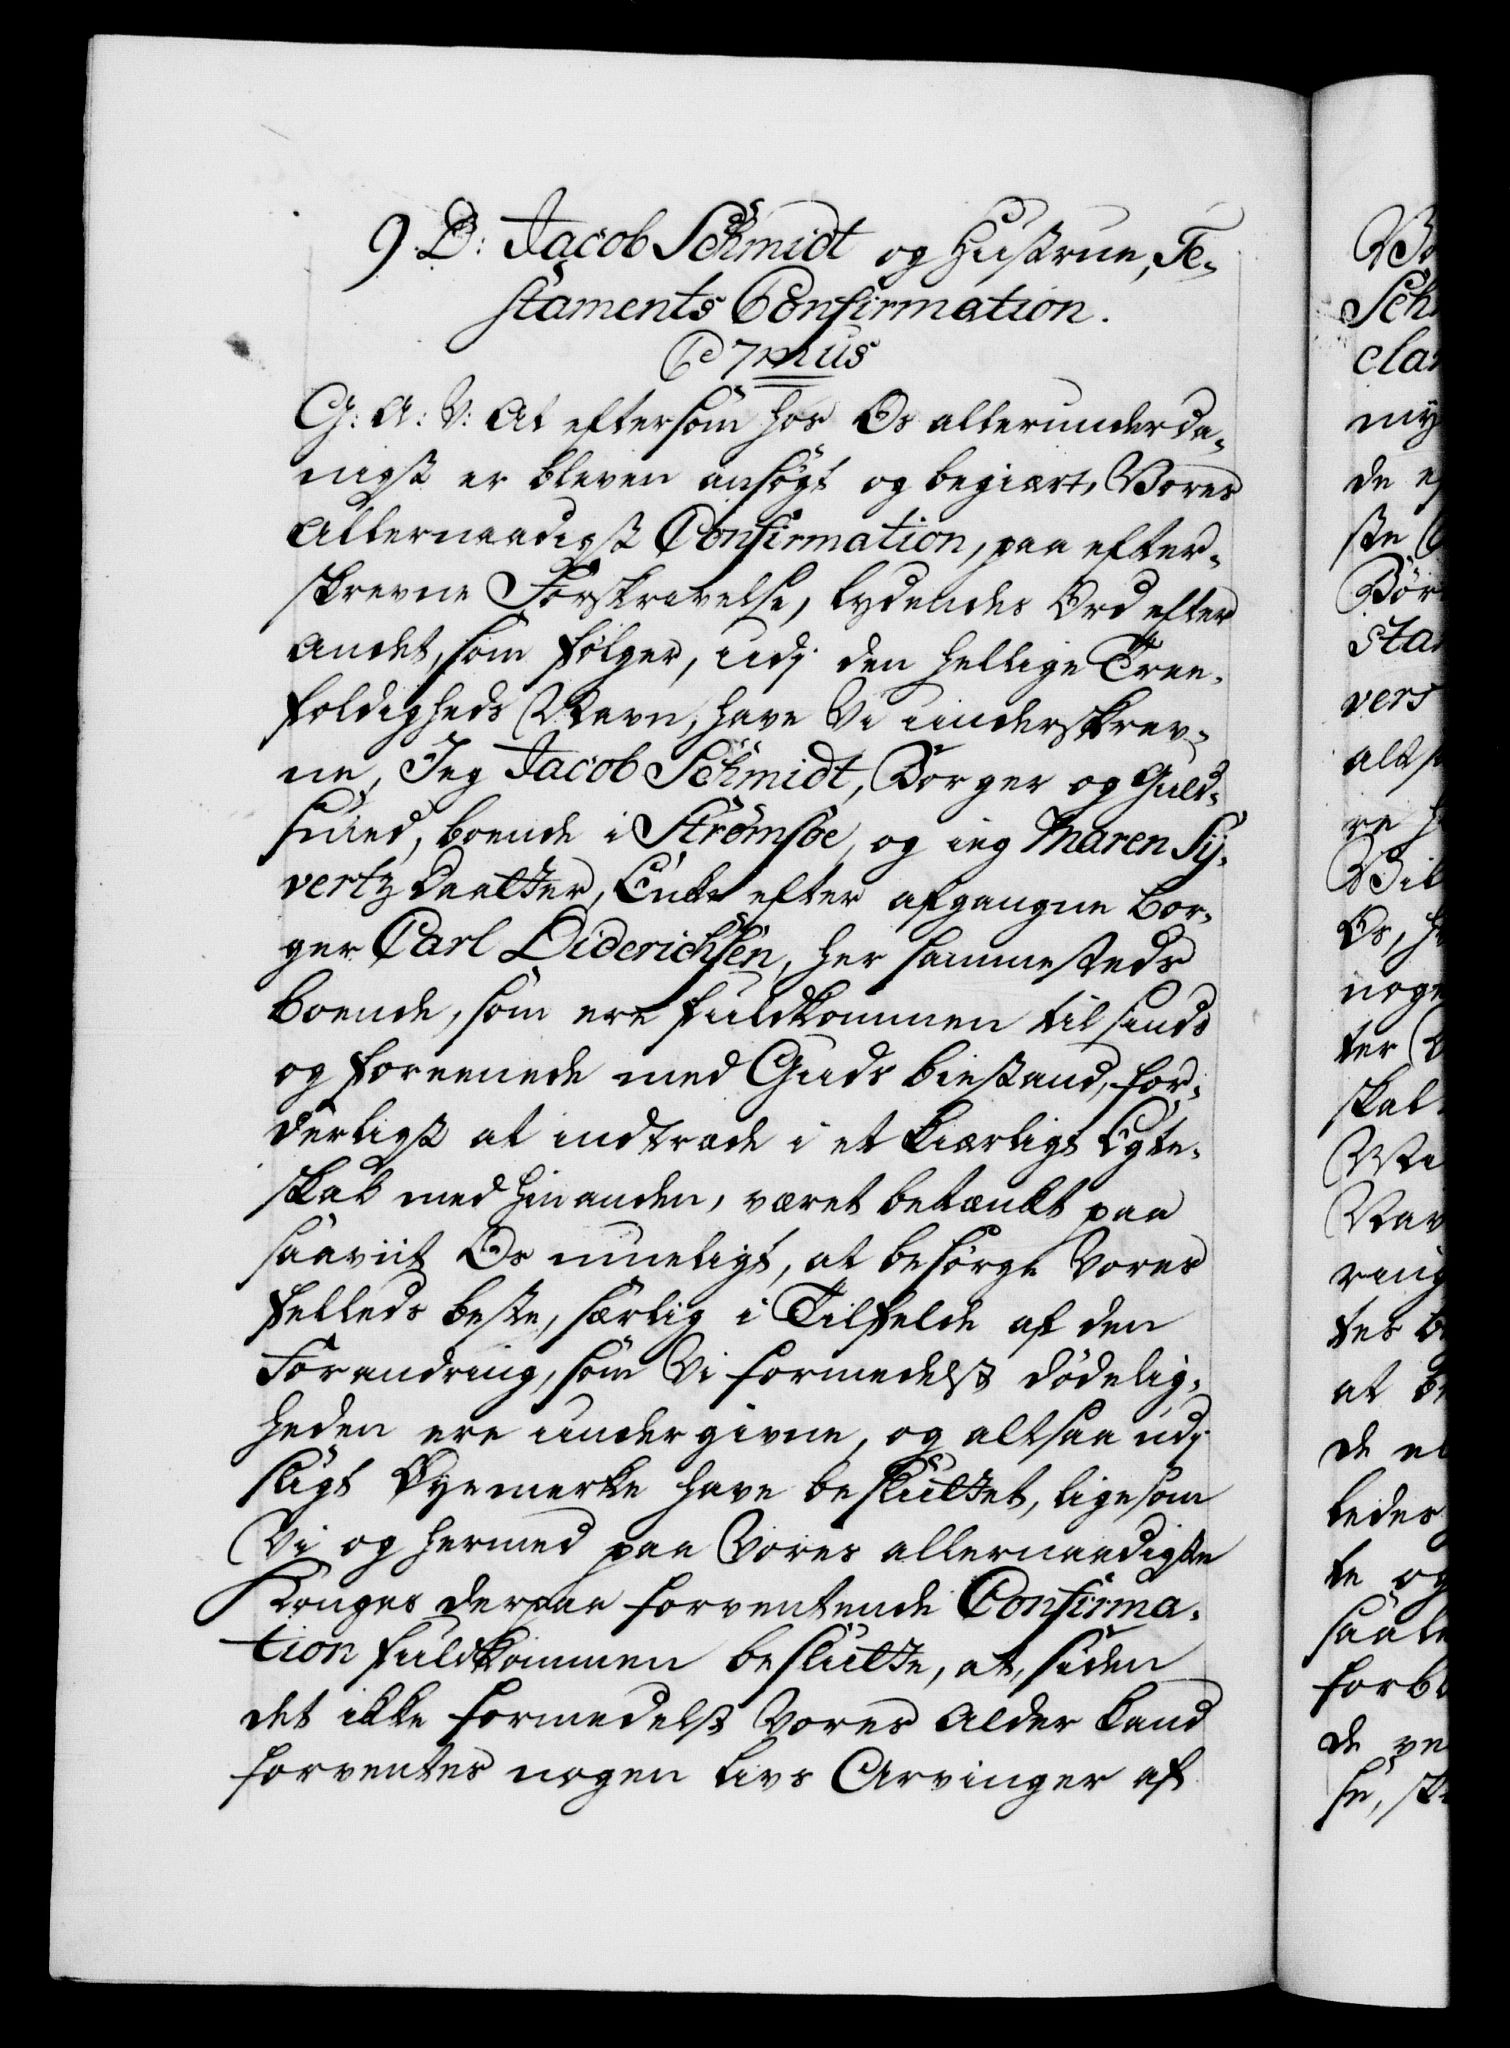 9. D: Jacob Schmidt og Hustrue, Te-
staments Confirmation.
C 7mus
G: A: V: At eftersom hos Os allerunderda-
nigst er bleven ansøgt og begiært, Vores
Allernaadigst Confirmation, paa efter-
skrevne Forskrivelse, lydendes Ord efter
andet, som følger, udj den hellige Tree-
foldigheds Navn, have Vi underskrev-
ne, Jeg Jacob Schmidt, Borger og Guld-
smed, boende i Strømsøe, og ieg Maren Sy-
vertz Daatter, Enke efter afgangne Bor-
ger Carl Diderichsen, her sammesteds
boende, som ere fuldkommen til sinds
og foreenede med Guds biestand, for-
derligst at indtræde i et kiærligt Egte-
skab med hinanden, været betænkt paa
saaviit Os mueligt, at besørge Vores
Felleds beste, særlig i Tilfelde af den
Forandring, som Vi formedelst dødelig-
heden ere undergivne, og altsaa udj
sligt Øyemerke have besluttet, ligesom
Vi og hermed paa Vores allernaadigste
Konges derpaa forventende Confirma-
tion fuldkommen beslutte, at, siden
det ikke formedelst Vores Alder kand
forventes nogen Livs Arvinger af